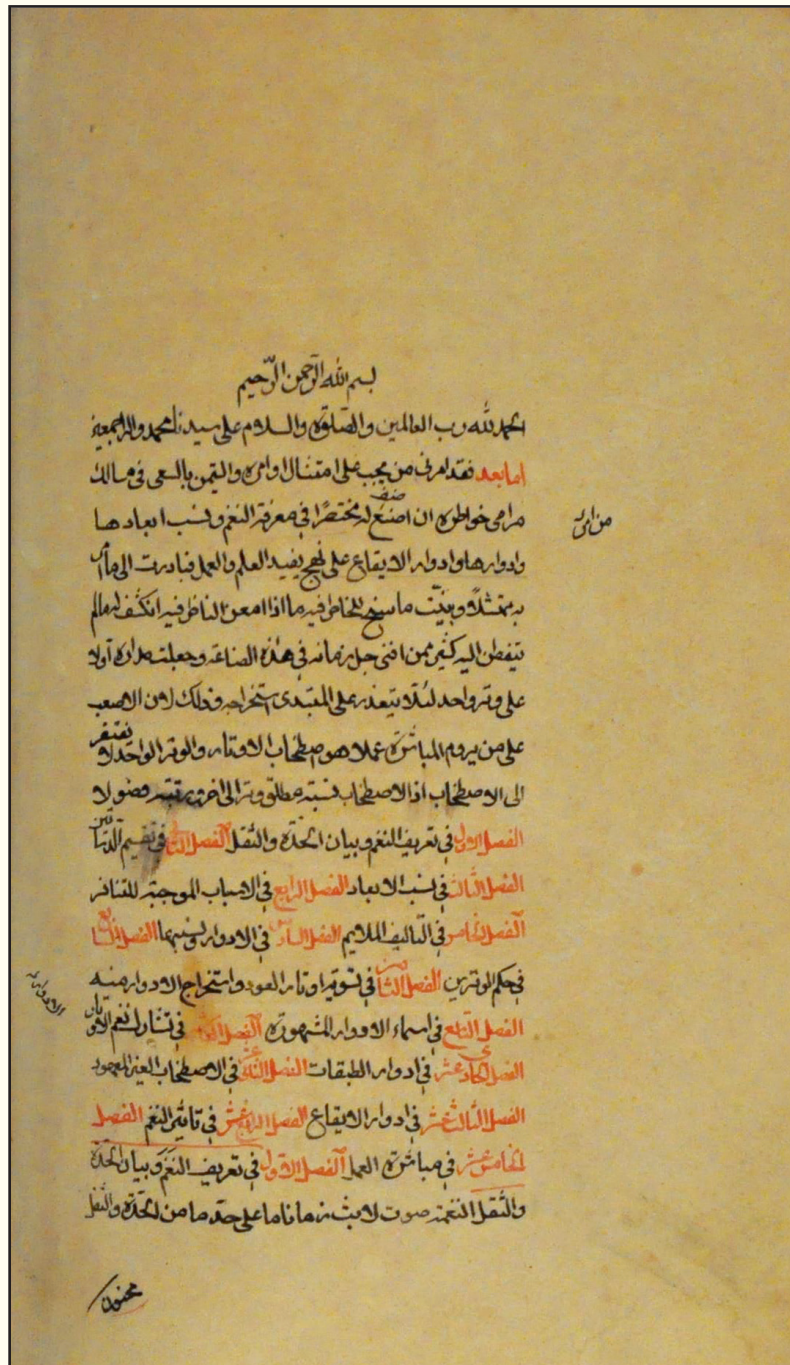 بسم الله الرحمن الرحيم
الحمد لله رب العالمين والصلوة والسلام على سيدنا محمد واله اجمعين
اما بعد فقد امرنى من يجب على امتثال اوامره والتيمن بالسعى فى مسالك
مرامى خواطره ان اصنع له مختصرًا في معرفة النغم ونسب ابعادها
وادوارها وادوار الايقاع على نهج يفيد العلم والعمل فبادرت الى ما امر
به ممتثلاً وبينت ما سنح للخاطر فيه ما اذا امعن الناظر فيه انكشف له ما لم
يتفطن اليه كثير ممن افنى جل زمانه في هذه الصناعة وجعلت مداره اولا
على وتر واحد لئلا يتعذر على المبتدى استخراجه وذلك لان الاصعب
على من يروم المباشرة عملا هو اصطخاب الاوتار والوتر الواحد لا يفتقر
الى الاصطخاب اذ الاصطخاب نسبة مطلق وتر الى اخر فصولا
الفصل الاول في تعريف النغم وبيان الحدة والثقل الفصل الثانى في تقسيم الدساتين
الفصل الثالث في نسب الابعاد الفصل الرابع في الاسباب الموجبة للتنافر
الفصل الخامس في التاليف الملايم الفصل السادس في الادوار ونسبها الفصل السابع
في حكم الوترين الفصل الثامن في تسوية اوتار العود واستخراج الادوار منه
الفصل التاسع في اسماء الادوار المشهورة الفصل العاشر في تشارك نغم الادوار
الفصل الحادى عشر في ادوار الطبقات الفصل الثانى عشر في الاصطخاب الغير المعهود
الفصل الثالث عشر في ادوار الايقاع الفصل الرابع عشر في تاثير النغم الفصل
الخامس عشر في مباشرة العمل الفصل الاول في تعريف النغم وبيان الحدة
والثقل النغمة صوت لابث زمانا ما على حد ما من الحدة والثقل